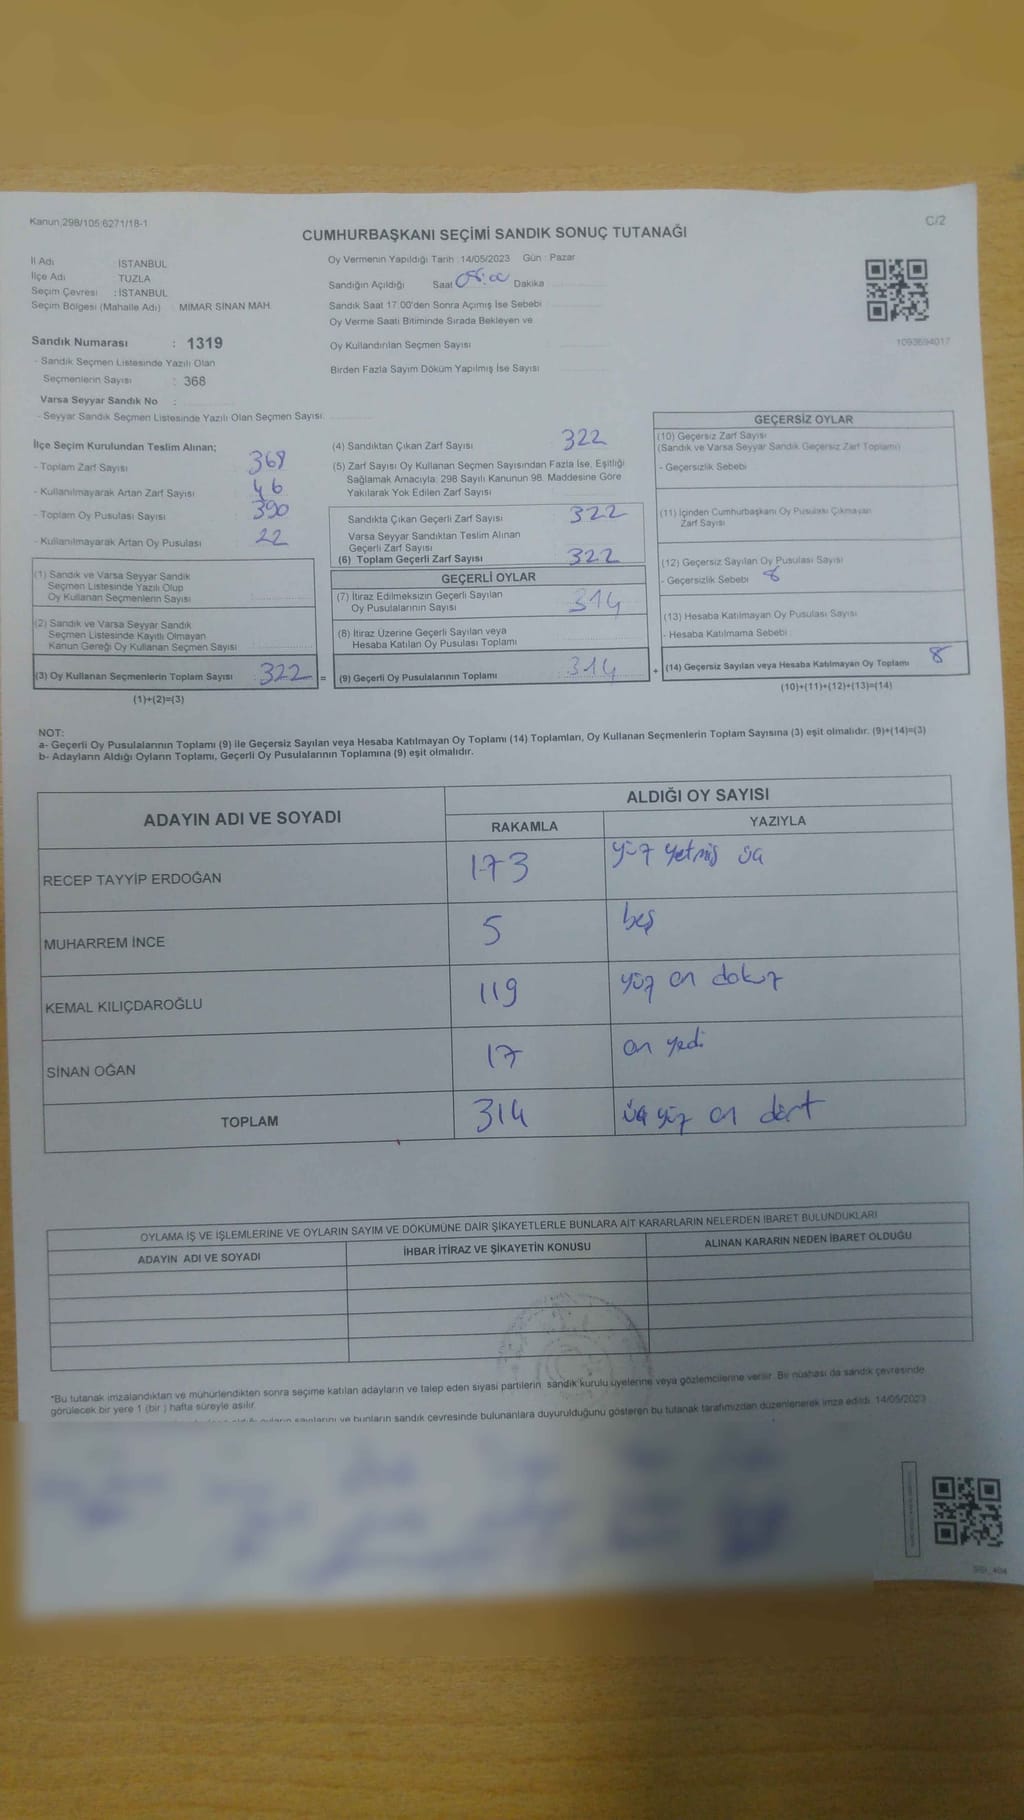 Kanun:298/105:6271/18-1
C/2
CUMHURBAŞKANI SEÇİMİ SANDIK SONUÇ TUTANAĞI
İl Adı İSTANBUL
İlçe Adı TUZLA
Seçim Çevresi : İSTANBUL
Seçim Bölgesi (Mahalle Adı) : MİMAR SİNAN MAH
Sandık Numarası : 1319
- Sandık Seçmen Listesinde Yazılı Olan
Seçmenlerin Sayısı : 368
Varsa Seyyar Sandık No :
- Seyyar Sandık Seçmen Listesinde Yazılı Olan Seçmen Sayısı:
Oy Vermenin Yapıldığı Tarih : 14/05/2023 Gün : Pazar
Sandığın Açıldığı Saat 08:00 Dakika
Sandık Saat 17:00'den Sonra Açımış İse Sebebi
Oy Verme Saati Bitiminde Sırada Bekleyen ve
Oy Kullandırılan Seçmen Sayısı
Birden Fazla Sayım Döküm Yapılmış İse Sayısı
1093694017
İlçe Seçim Kurulundan Teslim Alınan;
- Toplam Zarf Sayısı 368
- Kullanılmayarak Artan Zarf Sayısı 46
- Toplam Oy Pusulası Sayısı 390
- Kullanılmayarak Artan Oy Pusulası 22
(1) Sandık ve Varsa Seyyar Sandık
Seçmen Listesinde Yazılı Olup
Oy Kullanan Seçmenlerin Sayısı
(2) Sandık ve Varsa Seyyar Sandık
Seçmen Listesinde Kayıtlı Olmayan
Kanun Gereği Oy Kullanan Seçmen Sayısı
(3) Oy Kullanan Seçmenlerin Toplam Sayısı : 322 =
(1)+(2)=(3)
(4) Sandıktan Çıkan Zarf Sayısı 322
(5) Zarf Sayısı Oy Kullanan Seçmen Sayısından Fazla İse, Eşitliği
Sağlamak Amacıyla; 298 Sayılı Kanunun 98. Maddesine Göre
Yakılarak Yok Edilen Zarf Sayısı
Sandıkta Çıkan Geçerli Zarf Sayısı 322
Varsa Seyyar Sandıktan Teslim Alınan
Geçerli Zarf Sayısı
(6) Toplam Geçerli Zarf Sayısı 322
GEÇERLİ OYLAR
(7) İtiraz Edilmeksizin Geçerli Sayılan
Oy Pusulalarının Sayısı 314
(8) İtiraz Üzerine Geçerli Sayılan veya
Hesaba Katılan Oy Pusulası Toplamı
(9) Geçerli Oy Pusulalarının Toplamı : 314 +
GEÇERSİZ OYLAR
(10) Geçersiz Zarf Sayısı
(Sandık ve Varsa Seyyar Sandık Geçersiz Zarf Toplamı)
- Geçersizlik Sebebi
(11) İçinden Cumhurbaşkanı Oy Pusulası Çıkmayan
Zarf Sayısı
(12) Geçersiz Sayılan Oy Pusulası Sayısı
- Geçersizlik Sebebi 8
(13) Hesaba Katılmayan Oy Pusulası Sayısı
- Hesaba Katılmama Sebebi
(14) Geçersiz Sayılan veya Hesaba Katılmayan Oy Toplamı 8
(10)+(11)+(12)+(13)=(14)
NOT:
a- Geçerli Oy Pusulalarının Toplamı (9) ile Geçersiz Sayılan veya Hesaba Katılmayan Oy Toplamı (14) Toplamları, Oy Kullanan Seçmenlerin Toplam Sayısına (3) eşit olmalıdır. (9)+(14)=(3)
b- Adayların Aldığı Oyların Toplamı, Geçerli Oy Pusulalarının Toplamına (9) eşit olmalıdır.
ADAYIN ADI VE SOYADI
ALDIĞI OY SAYISI
RAKAMLA YAZIYLA
RECEP TAYYİP ERDOĞAN 173 yüz yetmiş üç
MUHARREM İNCE 5 beş
KEMAL KILIÇDAROĞLU 119 yüz on dokuz
SİNAN OĞAN 17 on yedi
TOPLAM 314 üç yüz on dört
OYLAMA İŞ VE İŞLEMLERİNE VE OYLARIN SAYIM VE DÖKÜMÜNE DAİR ŞİKAYETLERLE BUNLARA AİT KARARLARIN NELERDEN İBARET BULUNDUKLARI
ADAYIN ADI VE SOYADI İHBAR İTİRAZ VE ŞİKAYETİN KONUSU ALINAN KARARIN NEDEN İBARET OLDUĞU
*Bu tutanak imzalandıktan ve mühürlendikten sonra seçime katılan adayların ve talep eden siyasi partilerin sandık kurulu üyelerine veya gözlemcilerine verilir. Bir nüshası da sandık çevresinde
görülecek bir yere 1 (bir ) hafta süreyle asılır.
ve bunların sandık çevresinde bulunanlara duyurulduğunu gösteren bu tutanak tarafımızdan düzenlenerek imza edildi. 14/05/2023